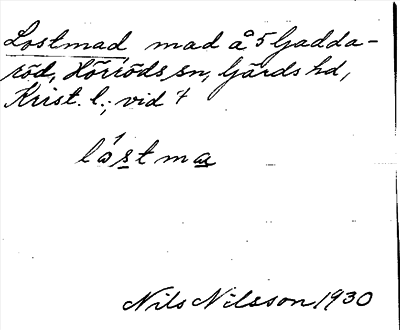 Lostmad mad å 5 Gadda-
röd, Hörröds sn, Gärds hd,
Krist. l.; vid 7
låstma
Nils Nilsson 1930